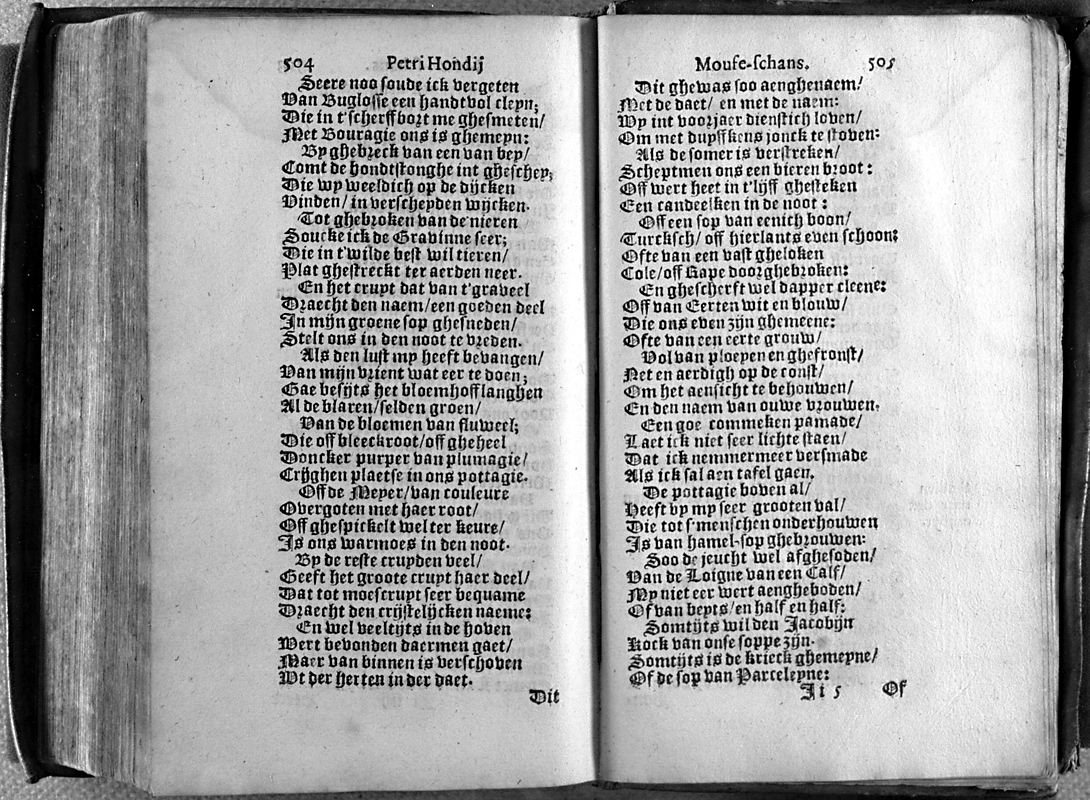 504 Petri Hondij
Seere noo soude ick vergeten
Van Buglosse een handtvol cleyn;
Die in t'scherffbort me ghesmeten/
Met Bouragie ons is ghemeyn:
By ghebreck van een van bey/
Comt de hondtstonghe int gheschey;
Die wy weeldich op de dijcken
Vinden/ in verscheyden wijcken.
Tot ghebroken van de nieren
Soucke ick de Gravinne seer;
Die in t'wilde best wil tieren/
Plat ghestreckt ter aerden neer.
En het cruyt dat van t'graveel
Draecht den naem/een goeden deel
In mijn groene sop ghesneden/
Stelt ons in den noot te vreden.
Als den lust my heeft bevangen/
Van mijn vrient wat eer te doen;
Gae besijts het bloemhoff langhen
Al de blaren/selden groen/
Van de bloemen van fluweel;
Die off bleeckroot/off gheheel
Doncker purper van plumagie/
Crijghen plaetse in ons pottagie.
Off de Meyer/van couleure
Overgoten met haer root/
Off ghespickelt wel ter keure/
Is ons warmoes in den noot.
By de reste cruyden veel/
Geeft het groote cruyt haer deel/
Dat tot moescruyt seer bequame
Draecht den crijstelijcken naeme:
En wel veeltijts in de hoven
Wert bevonden daermen gaet/
Maer van binnen is verschoven
Wt der herten in der daet.
Dit
Mouse-schans. 505
Dit ghewas soo aenghenaem/
Met de daet/ en met de naem:
Wy int voorjaer dienstich loven/
Om met duyffkens jonck te stoven:
Als de somer is verstreken/
Scheptmen ons een bieren broot:
Off wert heet in t'lijff ghesteken
Een candeelken in de noot:
Off een sop van eenich boon/
Turcksch/ off hierlants even schoon:
Ofte van een vast gheloken
Cole/off Rape doorghebroken:
En ghescherft wel dapper cleene:
Off van Eerten wit en blouw/
Die ons even zijn ghemeene:
Ofte van een eerte grouw/
Vol van ploeyen en ghefronst/
Net en aerdigh op de const/
Om het aensicht te behouwen/
En den naem van ouwe vrouwen.
Een goe commeken pamade/
Laet ick niet seer lichte staen/
Dat ick nemmermeer versmade
Als ick sal aen tafel gaen.
De pottagie boven al/
Heeft by my seer grooten val/
Die tot s'menschen onderhouwen
Is van hamel-sop ghebrouwen:
Soo de jeucht wel afghesoden/
Van de Loigne van een Calf/
My niet eer wert aengheboden/
Of van beyts/en half en half:
Somtijts wil den Jacobijn
Kock van onse soppe zijn.
Somtijts is de krieck ghemeyne/
Of de sop van Parceleyne:
Ii 5 Of